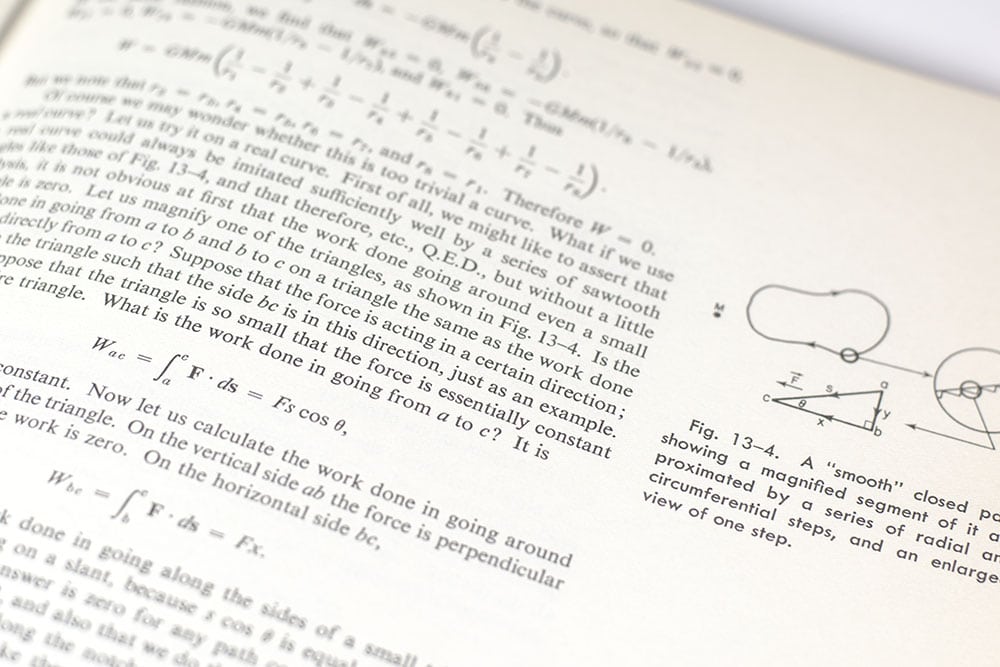 the curve, so that
W = GMm (1/r₂ − 1/r₁ + 1/r₃ − 1/r₂ + 1/r₄ − 1/r₃
But we note that and Therefore W = 0.
Of course we may wonder whether this is too trivial a curve. What if we use
a real curve? Let us try it on a real curve. First of all, we might like to assert that
real curve could always be imitated sufficiently well by a series of sawtooth
like those of Fig. 13–4, and that therefore, etc., Q.E.D., but without a little
it is not obvious at first that the work done going around even a small
is zero. Let us magnify one of the triangles, as shown in Fig. 13–4. Is the
one in going from a to b and b to c on a triangle the same as the work done
directly from a to c? Suppose that the force is acting in a certain direction;
the triangle such that the side bc is in this direction, just as an example.
ppose that the triangle is so small that the force is essentially constant
re triangle. What is the work done in going from a to c? It is
W_ac = ∫_a^c F · ds = Fs cos θ,
constant. Now let us calculate the work done in going around
of the triangle. On the vertical side ab the force is perpendicular
e work is zero. On the horizontal side bc,
W_bc = ∫_b^c F · ds = Fx.
k done in going along the sides of a small
on a slant, because s cos θ is equal
nswer is zero for any path
and also that we do
ong the notch
M
F
s
a
c
θ
y
x
b
Fig. 13–4. A “smooth” closed pa
showing a magnified segment of it a
proximated by a series of radial an
circumferential steps, and an enlarge
view of one step.